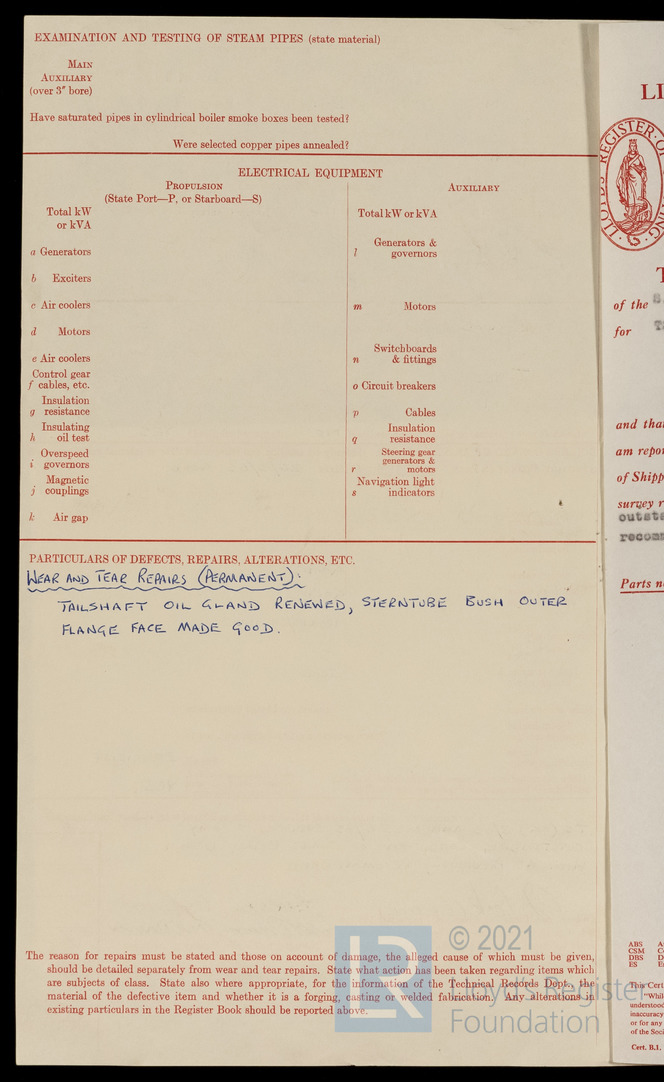 EXAMINATION AND TESTING OF STEAM PIPES (state material)
MAIN
AUXILIARY
(over 3″ bore)
Have saturated pipes in cylindrical boiler smoke boxes been tested?
Were selected copper pipes annealed?
ELECTRICAL EQUIPMENT
PROPULSION
(State Port—P, or Starboard—S)
Total kW
or kVA
a Generators
b Exciters
c Air coolers
d Motors
e Air coolers
Control gear
f cables, etc.
Insulation
g resistance
Insulating
h oil test
Overspeed
i governors
Magnetic
j couplings
k Air gap
AUXILIARY
Total kW or kVA
Generators &
l governors
m Motors
Switchboards
n & fittings
o Circuit breakers
p Cables
Insulation
q resistance
Steering gear
generators &
r motors
Navigation light
s indicators
PARTICULARS OF DEFECTS, REPAIRS, ALTERATIONS, ETC.
WEAR AND TEAR REPAIRS (PERMANENT):
TAILSHAFT OIL GLAND RENEWED, STERNTUBE BUSH OUTER
FLANGE FACE MADE GOOD.
The reason for repairs must be stated and those on account of damage, the alleged cause of which must be given,
should be detailed separately from wear and tear repairs. State what action has been taken regarding items which
are subjects of class. State also where appropriate, for the information of the Technical Records Dept., the
material of the defective item and whether it is a forging, casting or welded fabrication. Any alterations in
existing particulars in the Register Book should be reported above.
LR
© 2021
Lloyd's Register
Foundation
of the
for
and that
am repor
of Shipp
survey r
outsta
recom
Parts n
ABS
CSM
DBS
ES
This Cert
"Whil
understood
inaccuracy
or for any
of the Soci
Cert. B.1.